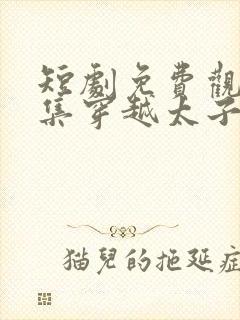 短劇免費觀
集穿越太子
猫兒的拖延症